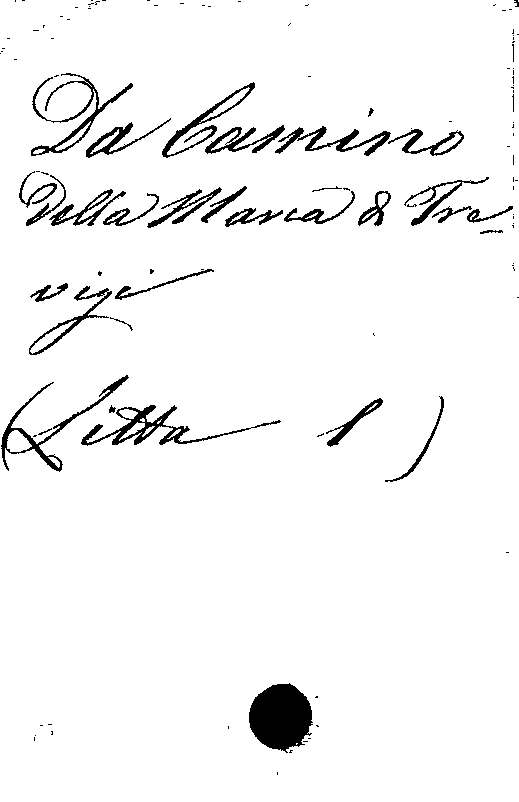 Da Camino
Della Marca di Tre-
vigi
(Litta 1)